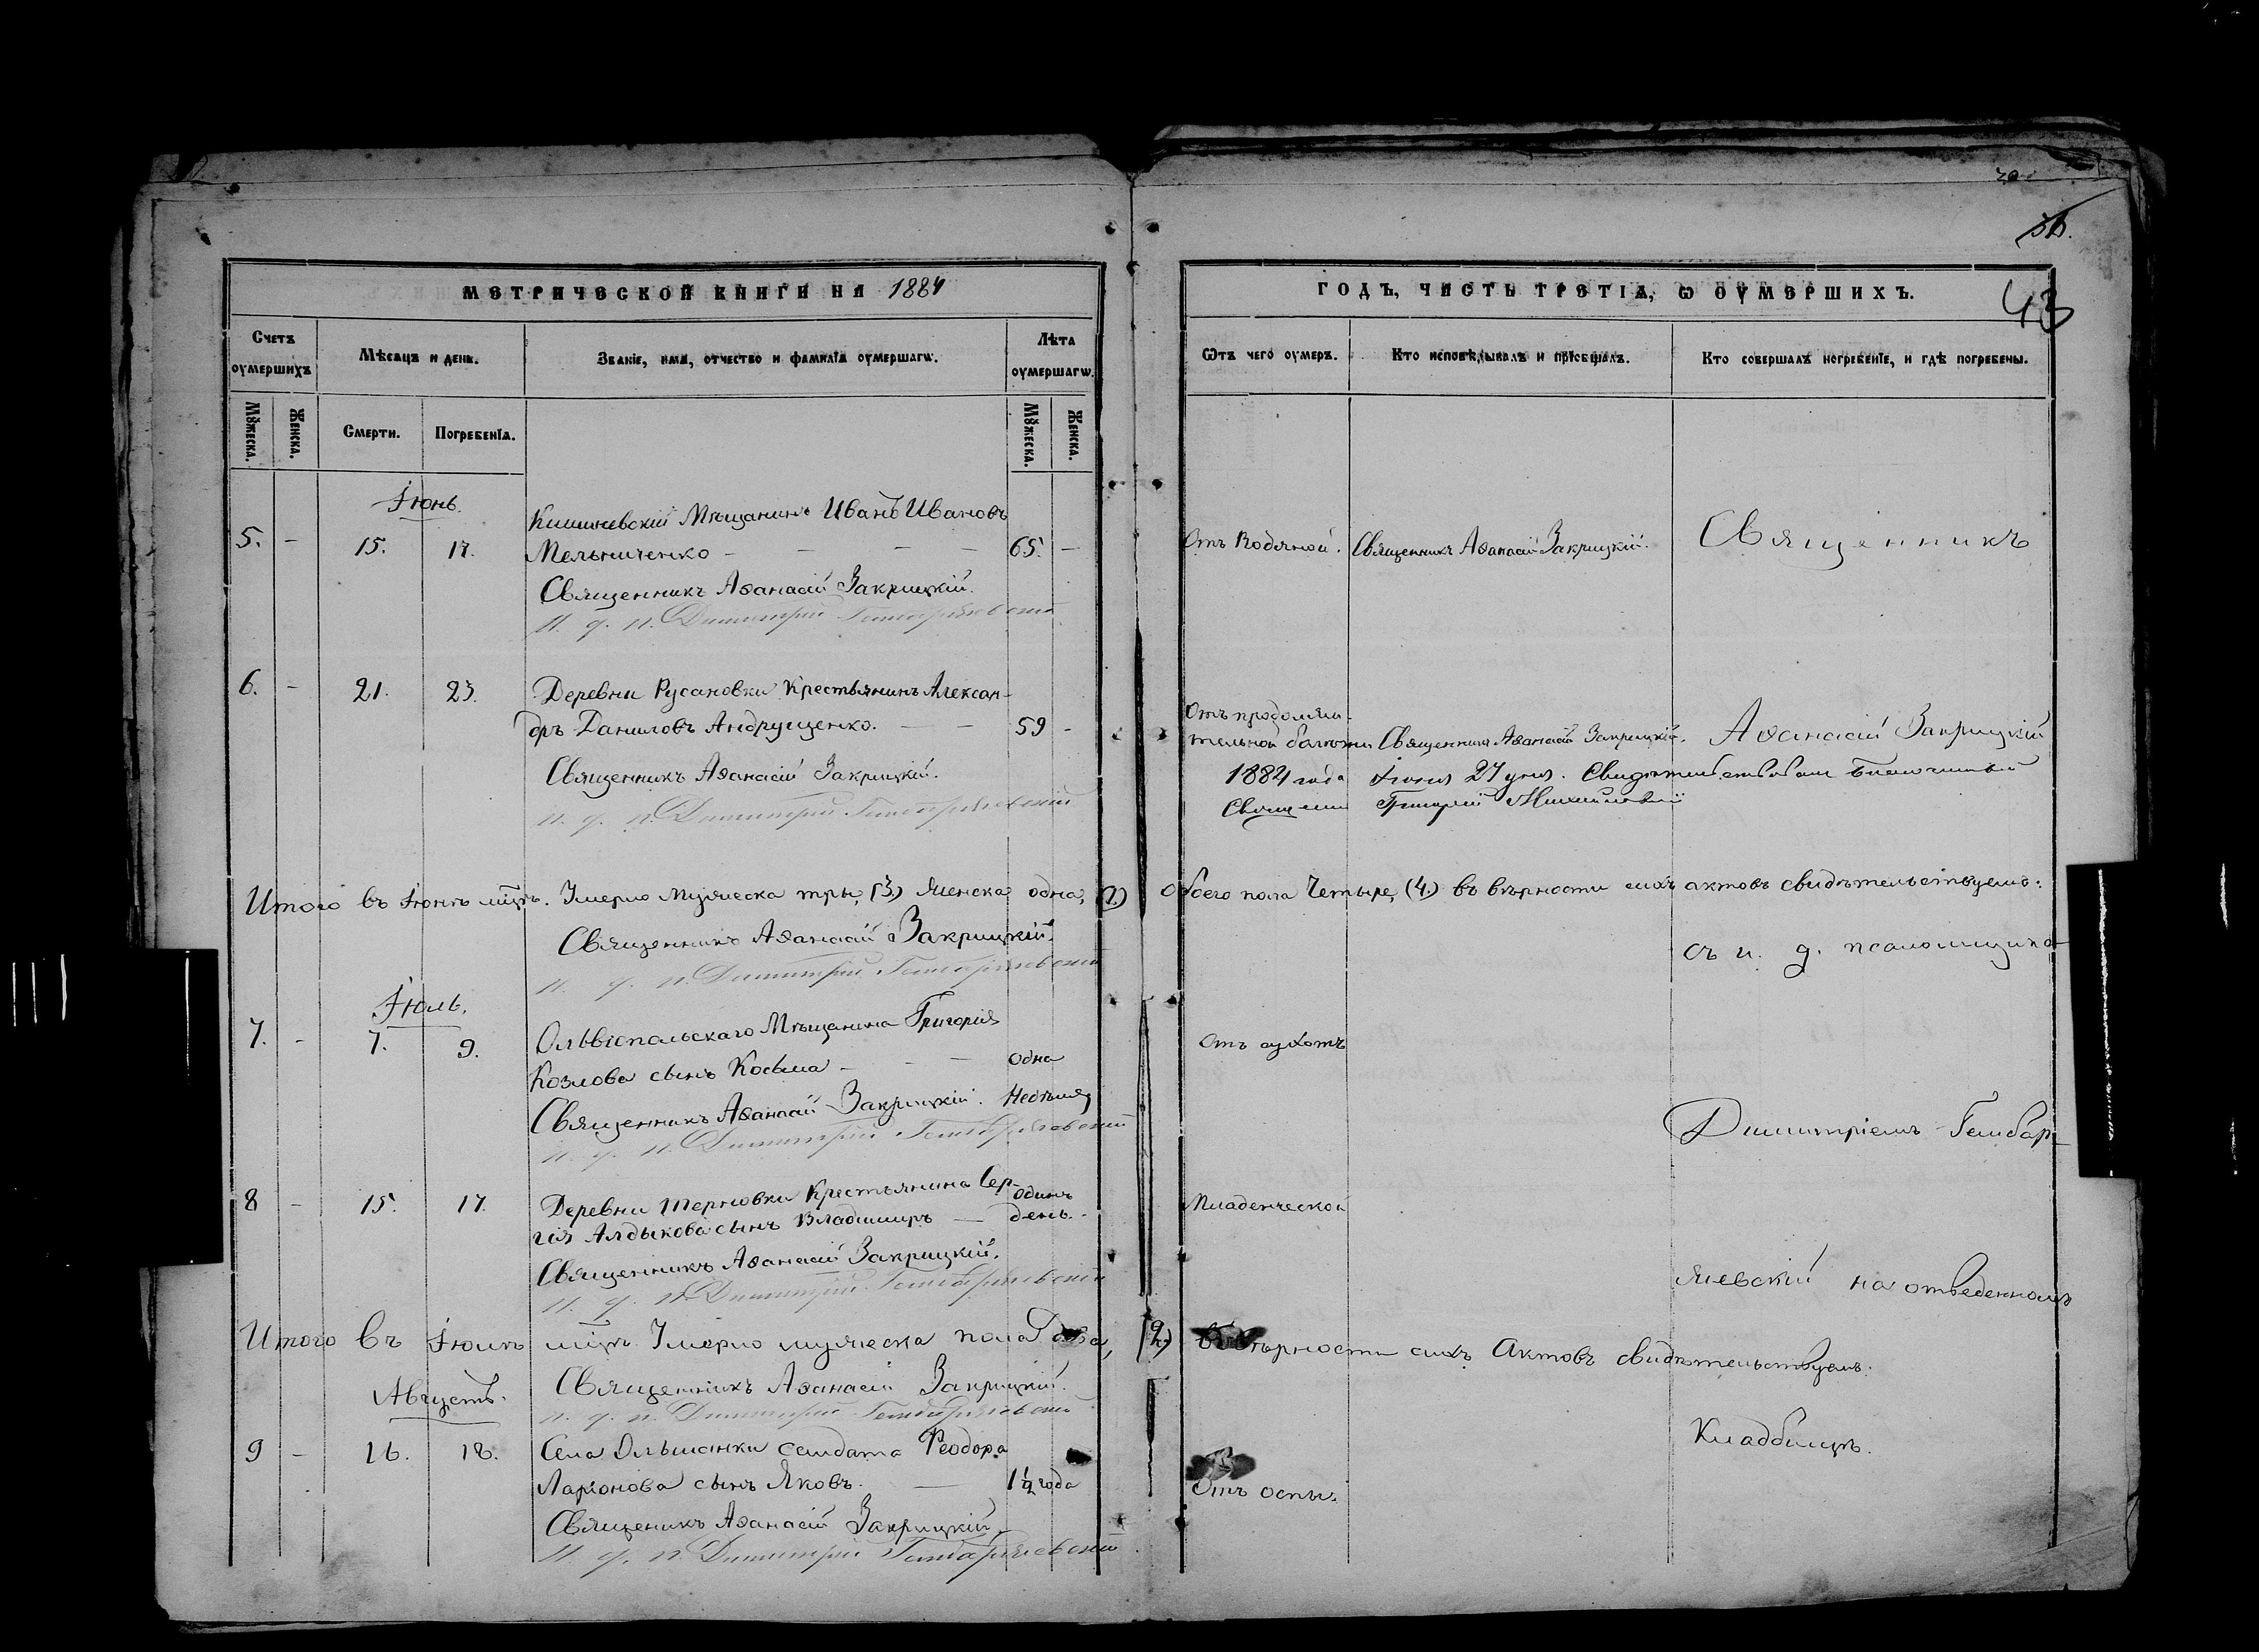 36.
43
МЕТРИЧЕСКОЙ КНИГИ НА 1884
ГОДЪ, ЧАСТЬ ТРЕТІѦ, Ѡ ОУМЕРШИХЪ.
Счетъ оумершихъ
Мѣсяцъ и день.
Званіе, имя, отчество и фамилія оумершагѡ.
Лѣта оумершагѡ.
Ѿтъ чего оумеръ.
Кто исповѣдывалъ и пріобщалъ.
Кто совершалъ погребеніе, и гдѣ погребены.
Мꙋжеска.
Женска.
Смерти.
Погребенія.
Мꙋжеска.
Женска.
Іюнь.
Кишиневскій Мѣщанинъ Иванъ Ивановъ
5. - 15. 17. Мельниченко - - - - 65. - Отъ водяной. Священникъ Аѳанасій Закрицкій. Священникъ
Священникъ Аѳанасій Закрицкій.
И. д. п. Димитрій
6. - 21. 23. Деревни Русановки Крестьянинъ Алексан-
дръ Даниловъ Андрущенко. - - 59 -
Отъ продолжи-
тельной болѣзни Священникъ Аѳанасій Закрицкій. Аѳанасій Закрицкій
Священникъ Аѳанасій Закрицкій.
И. д. п. Димитрій
1884 года Іюня 27 дня. Свидѣтельствовалъ Благочинный
Священ. Григорій
Итого въ Іюнѣ мцѣ. Умерло мужеска три, (3.) женска одна, (1.) Обоего пола Четыре, (4.) въ вѣрности сихъ актовъ свидѣтельствуемъ:
Священникъ Аѳанасій Закрицкій.
И. д. п. Димитрій
съ и. д. псаломщика
Іюль.
7. - 7. 9. Ольвіопольскаго Мѣщанина Григорія
Козлова сынъ Косьма - - - одна недѣля
Отъ сухотъ
Священникъ Аѳанасій Закрицкій.
И. д. п. Димитрій
Димитріемъ Гембар-
8 - 15. 17. Деревни Терновки Крестьянина Сер-
гія Алдыкова сынъ Владимиръ — одинъ день. -
Младенческой
Священникъ Аѳанасій Закрицкій.
И. д. п. Димитрій
жевскій на отведенномъ
Итого въ Іюлѣ мцѣ. Умерло мужеска пола два, (2.) въ вѣрности сихъ Актовъ свидѣтельствуемъ:
Священникъ Аѳанасій Закрицкій.
И. д. п. Димитрій
Августъ.
9 - 16. 18. Села Ольшанки солдата Ѳеодора
Ларіонова сынъ Яковъ. — 1½ года
Отъ оспы.
Кладбищѣ.
Священикъ Аѳанасій Закрицкій.
И. д. п. Димитрій